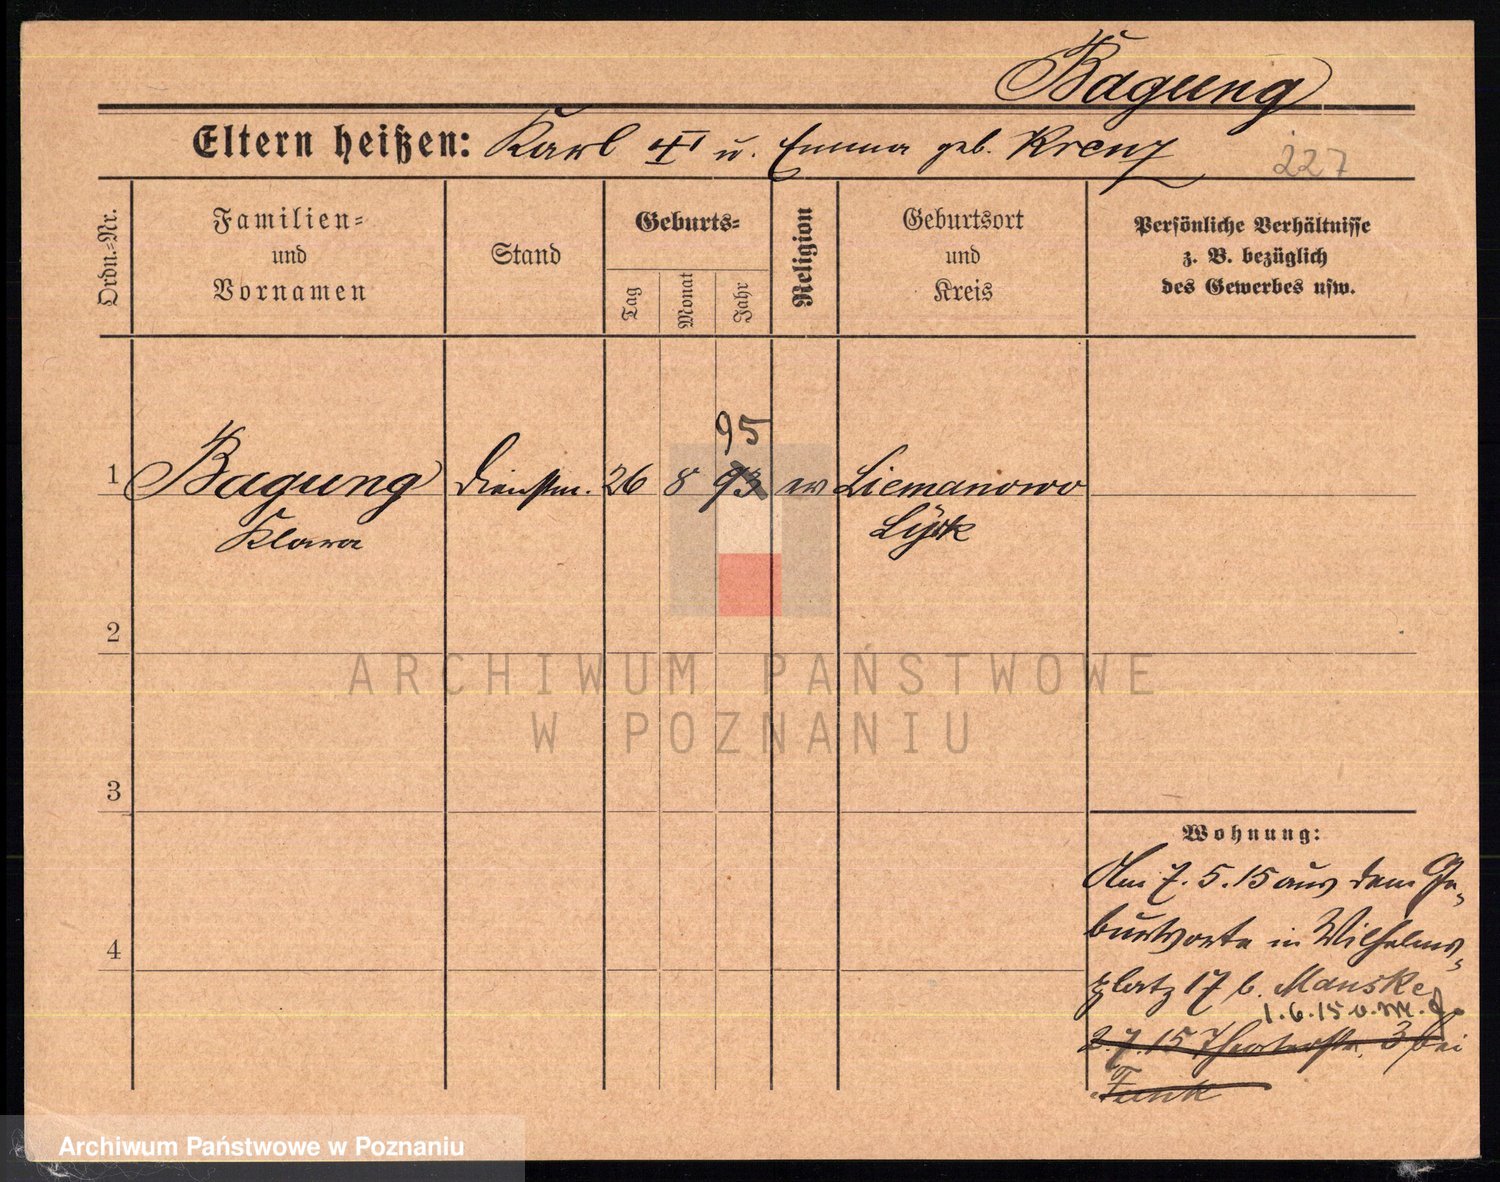 Bagung
Eltern heißen: Karl u. Emma geb. Krenz
227
Ordn.=Nr.
Familien=
und
Vornamen
Stand
Geburts=
Tag
Monat
Jahr
Religion
Geburtsort
und
Kreis
Persönliche Verhältnisse
z. B. bezüglich
des Gewerbes usw.
95
1 Bagung Dienstm. 26 8 93 ev Liemanowo
Klara Lyck
2
3
4
ARCHIWUM PAŃSTWOWE
W POZNANIU
Wohnung:
Am 7. 5. 15 aus dem Ge-
burtsorte in Wilhelms-
platz 17 b. Manske
1.6.15 v. M.
2. 7. 15 Theaterstr. 3 bei
Funk
Archiwum Państwowe w Poznaniu